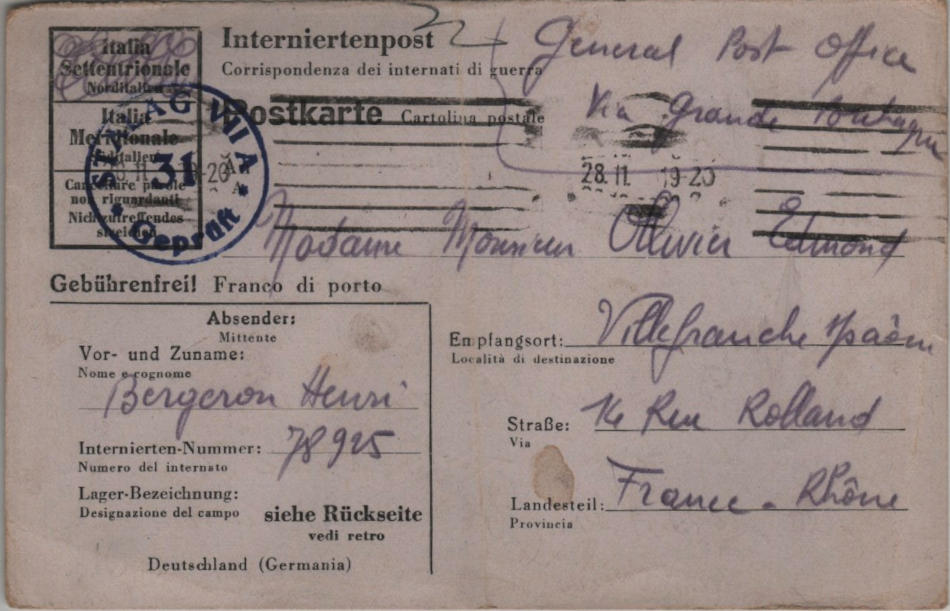 Italia
Settentrionale
Norditalien
Italia
Meridionale
Süditalien
Cancellare parole
non riguardanti
Nichtzutreffendes
streichen
STALAG VII A
31
Geprüft
Interniertenpost
Corrispondenza dei internati di guerra
Postkarte Cartolina postale
General Post Office
Via Grande
28.11. 19-20
Madame Monsieur Ollivier Edmond
Gebührenfrei! Franco di porto
Absender:
Mittente
Vor- und Zuname:
Nome e cognome
Bergeron Henri
Internierten-Nummer: 78925
Numero del internato
Lager-Bezeichnung:
Designazione del campo
siehe Rückseite
vedi retro
Deutschland (Germania)
Empfangsort: Villefranche
Località di destinazione
Straße: Rue Rolland
Via
Landesteil: France - Rhône
Provincia